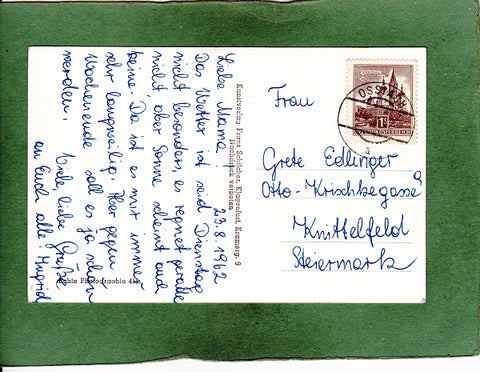 Liebe Mama!
23.8.1962
Das Wetter ist seid Dienstag
nicht besonders, es regnet gerade
nicht, aber Sonne scheint auch
keine. Da ist es mir immer
sehr langweilig. Hier gegen
Wochenende soll es ja schön
werden. Viele, liebe Grüße
an Euch alle! Ingrid
Kunstverlag Franz Schilcher, Klagenfurt, Kramerg. 9
Nachdruck verboten
Echte Photographie
OSSIACH
REPUBLIK ÖSTERREICH
Frau
Grete Edlinger
Otto-Krischkegasse 8
Knittelfeld
Steiermark